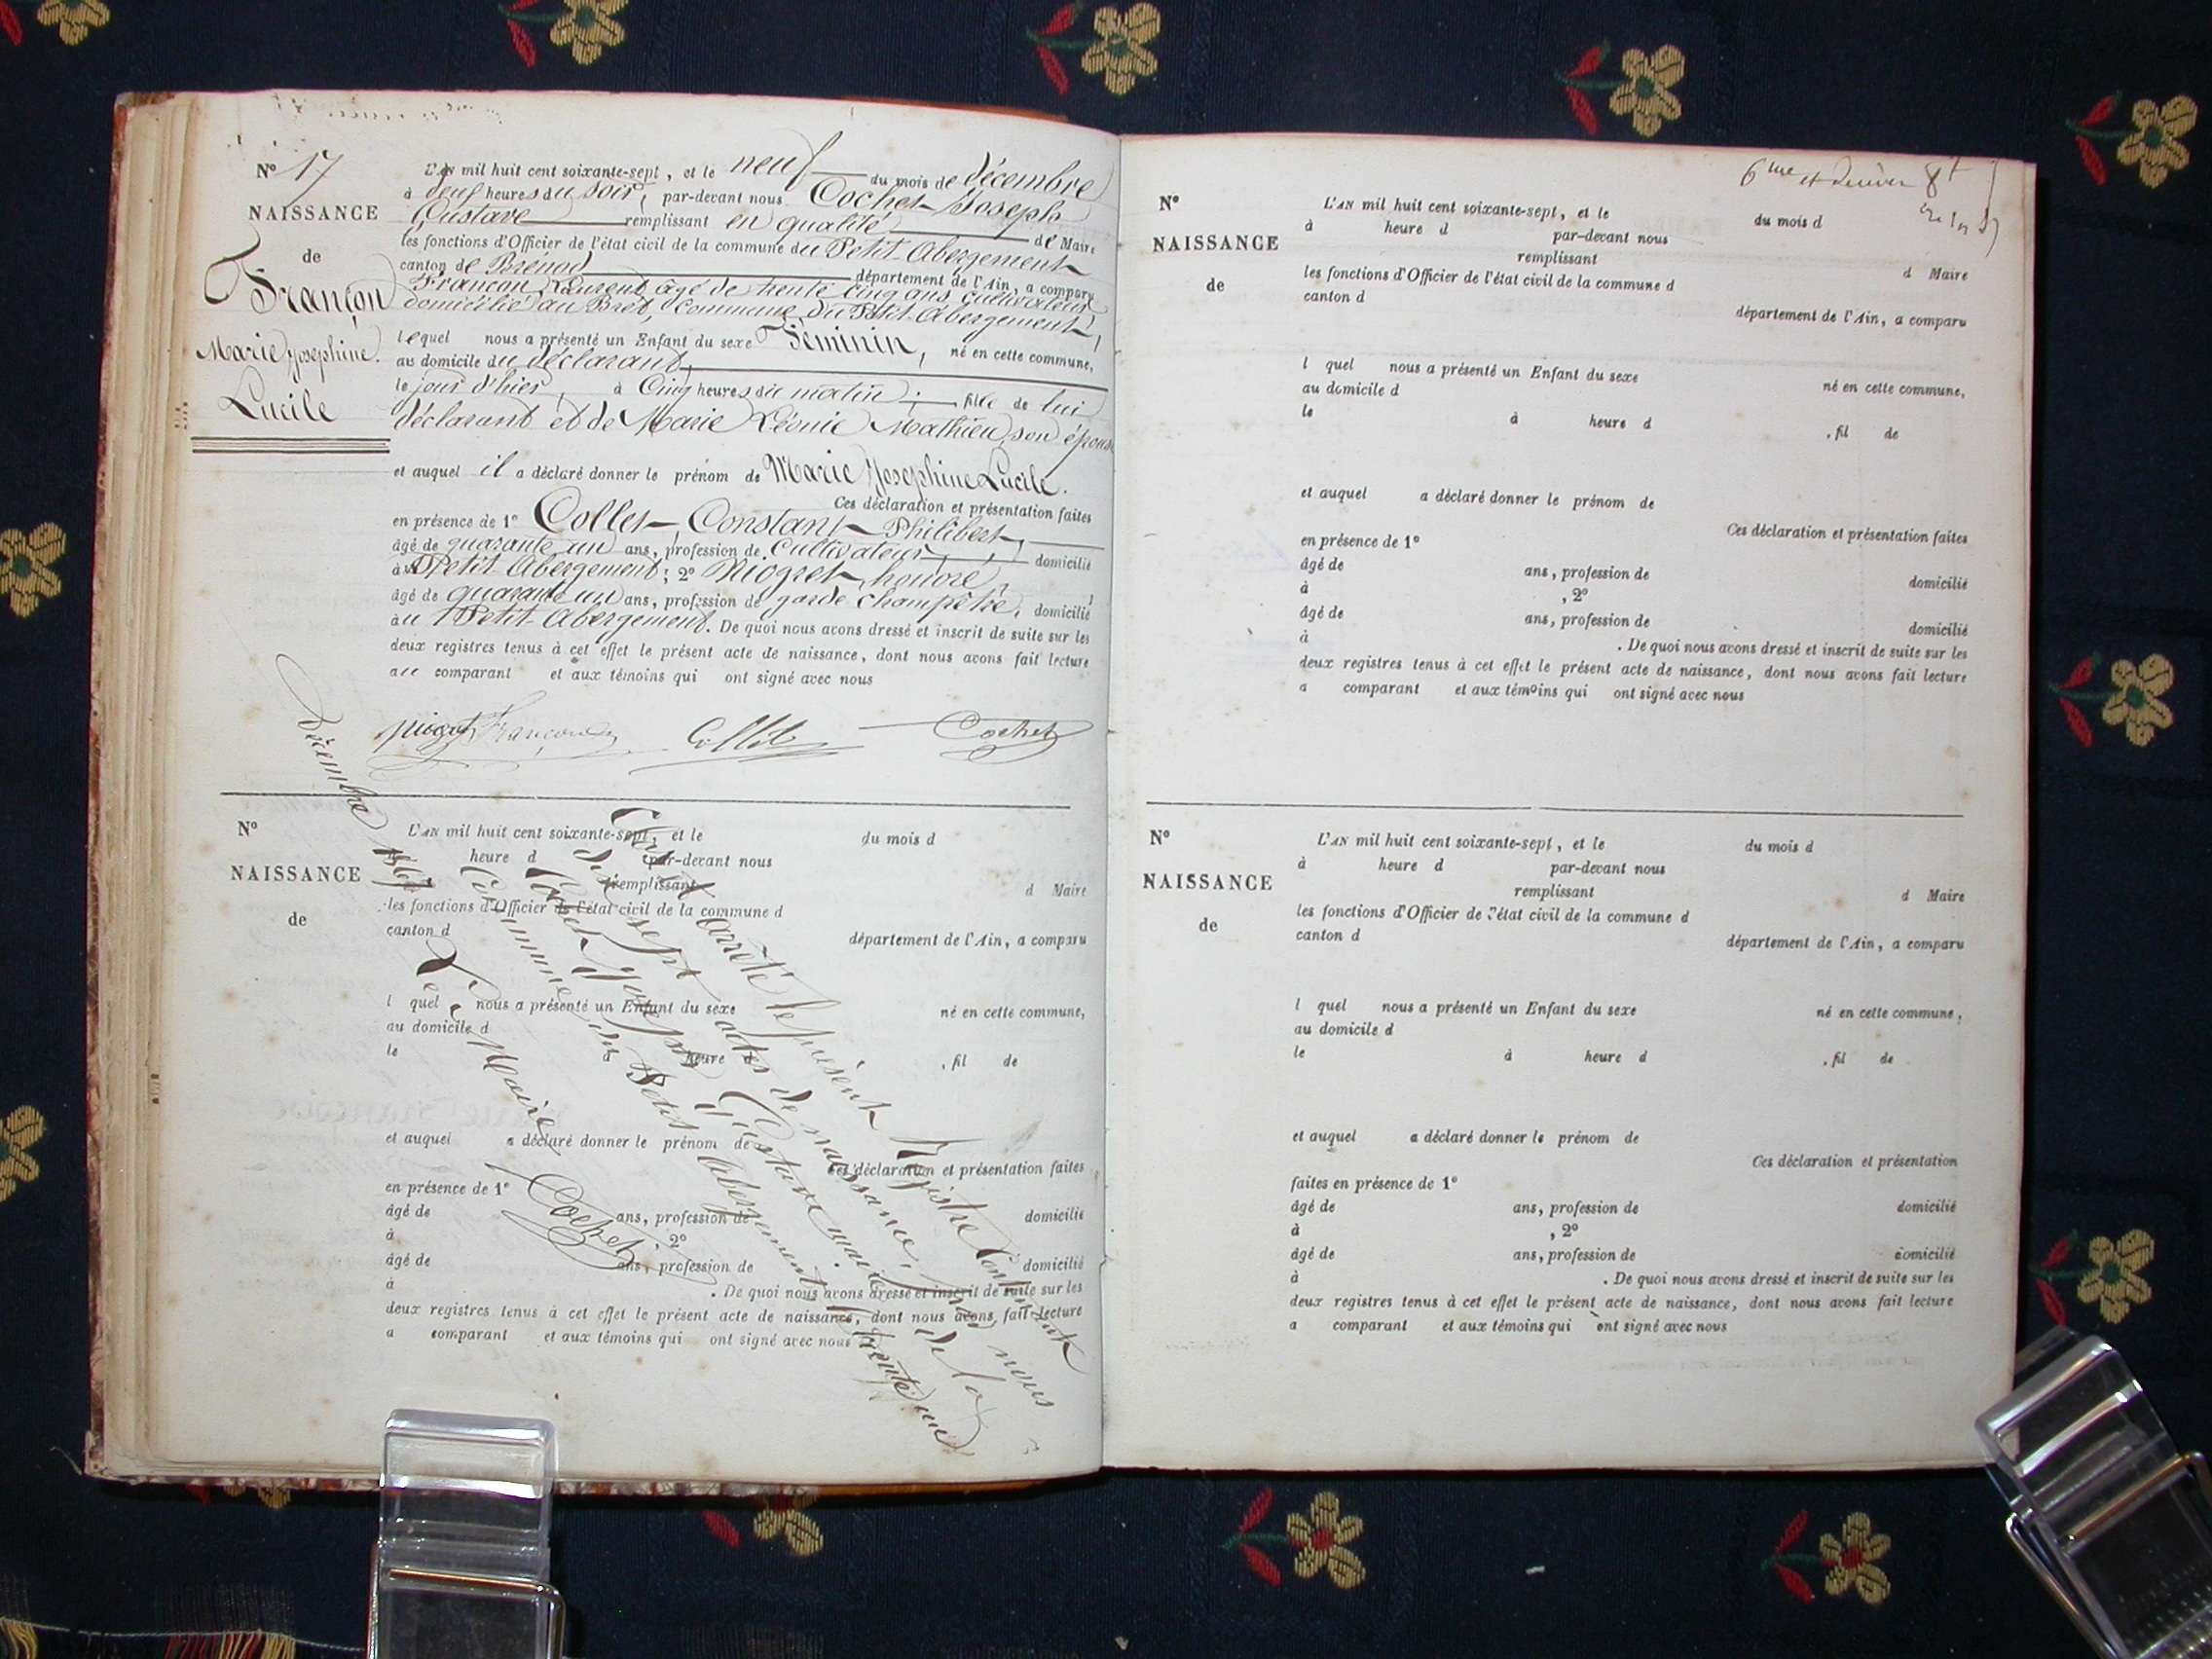 N° 17
NAISSANCE
de
Françon
Marie Josephine
Lucile
L'AN mil huit cent soixante-sept, et le neuf du mois de décembre
à deux heures du soir, par-devant nous Cochet Joseph
Gustave remplissant en qualité de Maire
les fonctions d'Officier de l'état civil de la commune du Petit Abergement
canton de Brénod département de l'Ain, a comparu
Françon Laurent, âgé de trente cinq ans, cultivateur
domicilié au Bret, commune du Petit Abergement,
lequel nous a présenté un Enfant du sexe Féminin, né en cette commune,
au domicile du déclarant,
le jour d'hier, à Cinq heures du matin; fille de lui
déclarant et de Marie Léonie Mathieu, son épouse
et auquel il a déclaré donner le prénom de Marie Josephine Lucile.
Ces déclaration et présentation faites
en présence de 1° Collet Constant Philibert,
âgé de quarante un ans, profession de Cultivateur, domicilié
au Petit Abergement; 2° Niogret honoré,
âgé de quarante un ans, profession de garde champêtre, domicilié
au Petit Abergement. De quoi nous avons dressé et inscrit de suite sur les
deux registres tenus à cet effet le présent acte de naissance, dont nous avons fait lecture
au comparant et aux témoins qui ont signé avec nous
Niogret Françon Collet Cochet
N°
NAISSANCE
de
L'AN mil huit cent soixante-sept, et le du mois d
à heure d par-devant nous
remplissant d Maire
les fonctions d'Officier de l'état civil de la commune d
canton d département de l'Ain, a comparu
l quel nous a présenté un Enfant du sexe né en cette commune,
au domicile d
le à heure d , fil de
et auquel a déclaré donner le prénom de
Ces déclaration et présentation faites
en présence de 1°
âgé de ans, profession de domicilié
à , 2°
âgé de ans, profession de domicilié
à . De quoi nous avons dressé et inscrit de suite sur les
deux registres tenus à cet effet le présent acte de naissance, dont nous avons fait lecture
a comparant et aux témoins qui ont signé avec nous
Clos et arrêté le présent Registre Contenant
dix sept actes de naissance, par nous
Cochet Joseph Gustave maire de la
Commune du Petit Abergement le trente un
Décembre 1867
Le Maire
Cochet
6ème et dernier
N°
NAISSANCE
de
L'AN mil huit cent soixante-sept, et le du mois d
à heure d par-devant nous
remplissant d Maire
les fonctions d'Officier de l'état civil de la commune d
canton d département de l'Ain, a comparu
l quel nous a présenté un Enfant du sexe né en cette commune,
au domicile d
le à heure d , fil de
et auquel a déclaré donner le prénom de
Ces déclaration et présentation faites
en présence de 1°
âgé de ans, profession de domicilié
à , 2°
âgé de ans, profession de domicilié
à . De quoi nous avons dressé et inscrit de suite sur les
deux registres tenus à cet effet le présent acte de naissance, dont nous avons fait lecture
a comparant et aux témoins qui ont signé avec nous
N°
NAISSANCE
de
L'AN mil huit cent soixante-sept, et le du mois d
à heure d par-devant nous
remplissant d Maire
les fonctions d'Officier de l'état civil de la commune d
canton d département de l'Ain, a comparu
l quel nous a présenté un Enfant du sexe né en cette commune,
au domicile d
le à heure d , fil de
et auquel a déclaré donner le prénom de
Ces déclaration et présentation
faites en présence de 1°
âgé de ans, profession de domicilié
à , 2°
âgé de ans, profession de domicilié
à . De quoi nous avons dressé et inscrit de suite sur les
deux registres tenus à cet effet le présent acte de naissance, dont nous avons fait lecture
a comparant et aux témoins qui ont signé avec nous